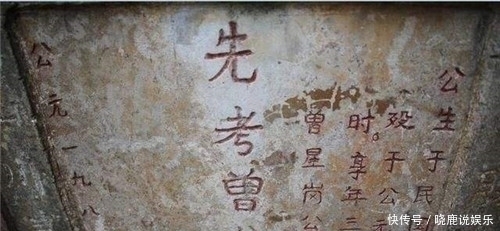 公生于民
殁于公元
时享年三
曾星岗公
先考曾
公元一九八
快传号/晓鹿说娱乐